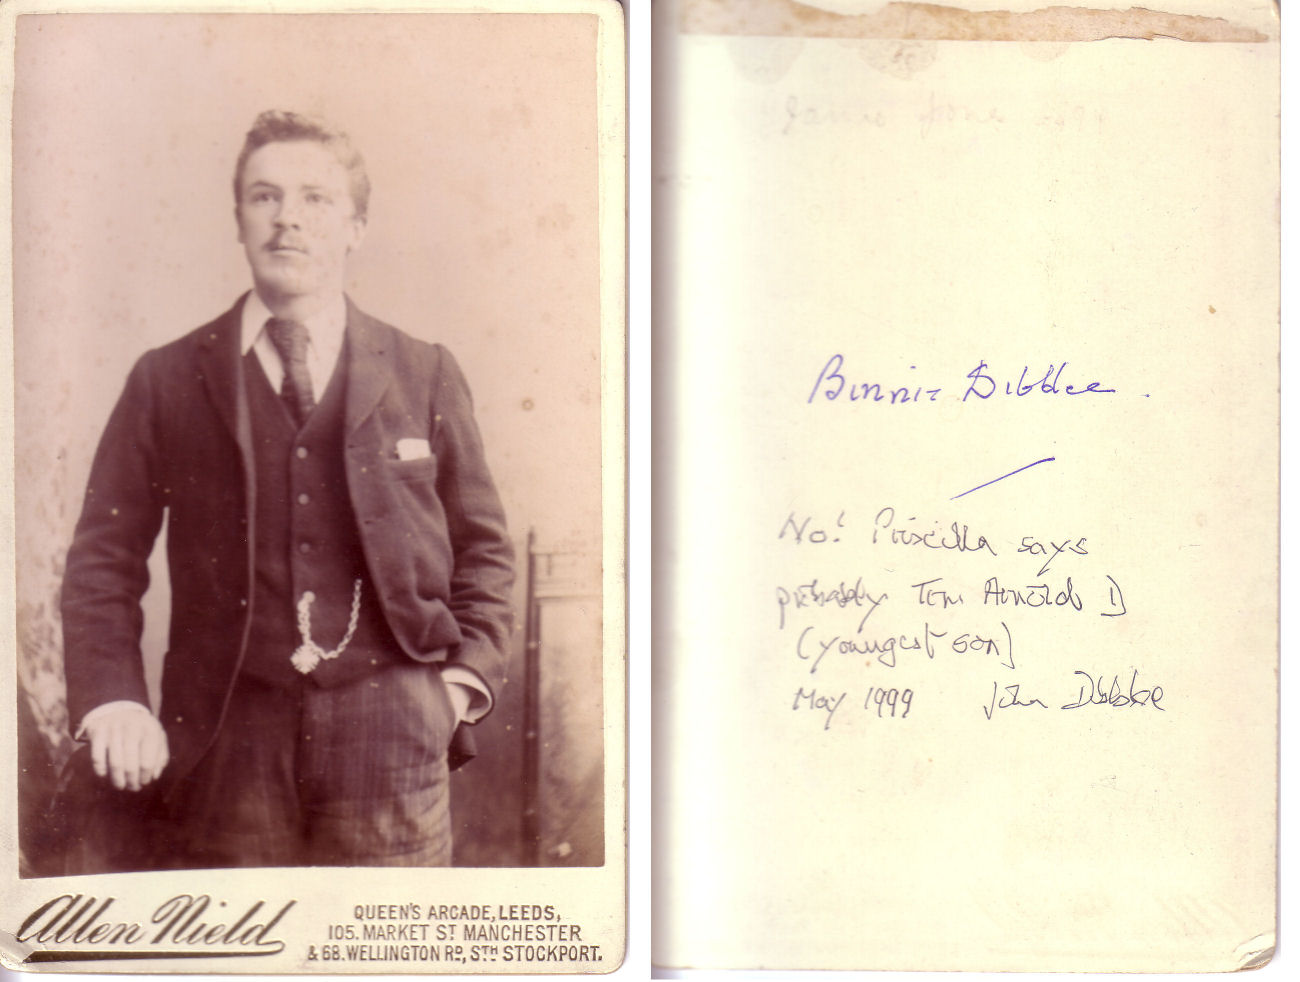 Allen Nield
QUEEN'S ARCADE, LEEDS,
105. MARKET ST MANCHESTER
& 68. WELLINGTON RD, STH STOCKPORT.
Binnie Dibblee.
No! Priscilla says
probably Tom Arnold D
(youngest son)
May 1999 John Dibblee